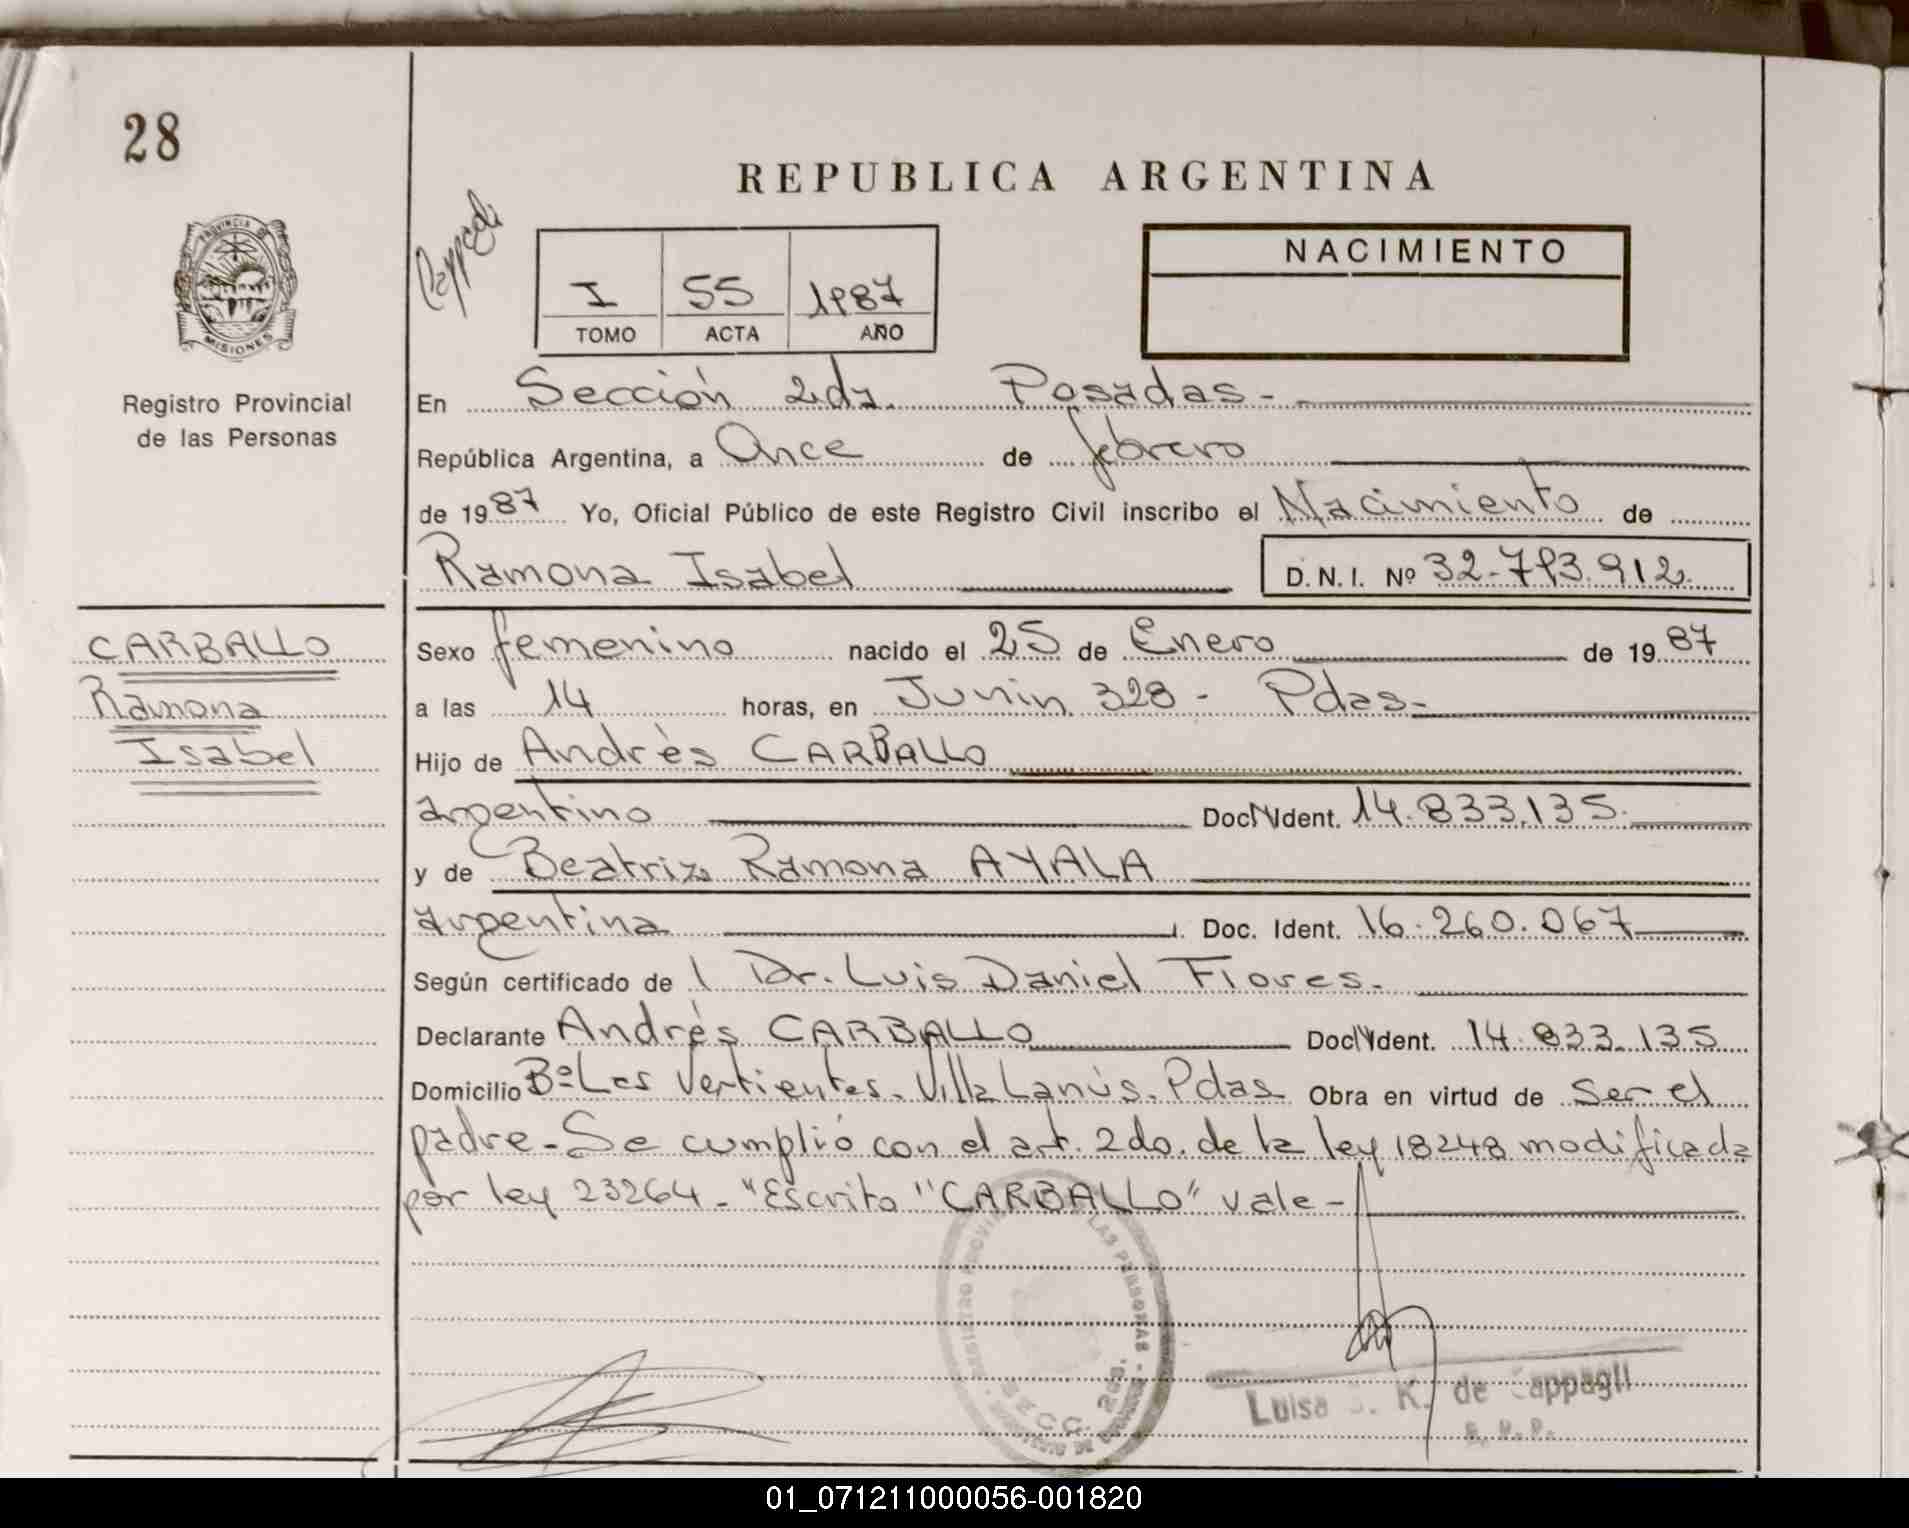 28
REPUBLICA ARGENTINA
PROVINCIA DE
MISIONES
Registro Provincial
de las Personas
I 55 1987
TOMO ACTA AÑO
NACIMIENTO
En Sección 2da. Posadas-
República Argentina, a Once de febrero
de 1987 Yo, Oficial Público de este Registro Civil inscribo el Nacimiento de
Ramona Isabel D.N.I. Nº 32.793.912
CARBALLO
Ramona
Isabel
Sexo femenino nacido el 25 de Enero de 1987
a las 14 horas, en Junin 328 - Pdas-
Hijo de Andrés CARBALLO
argentino Doc. Ident. 14.833.135
y de Beatriz Ramona AYALA
argentina Doc. Ident. 16.260.067
Según certificado de Dr. Luis Daniel Flores.
Declarante Andrés CARBALLO Doc. Ident. 14.833.135
Domicilio Bº Las Vertientes. Villa Lanús. Pdas Obra en virtud de Ser el
padre- Se cumplió con el art. 2do. de la ley 18248 modificada
por ley 23264 - "Escrito "CARBALLO" vale-
REGISTRO LAS PERSONAS
SECC. 2da.
Luisa K. de Cappagli
01_071211000056-001820